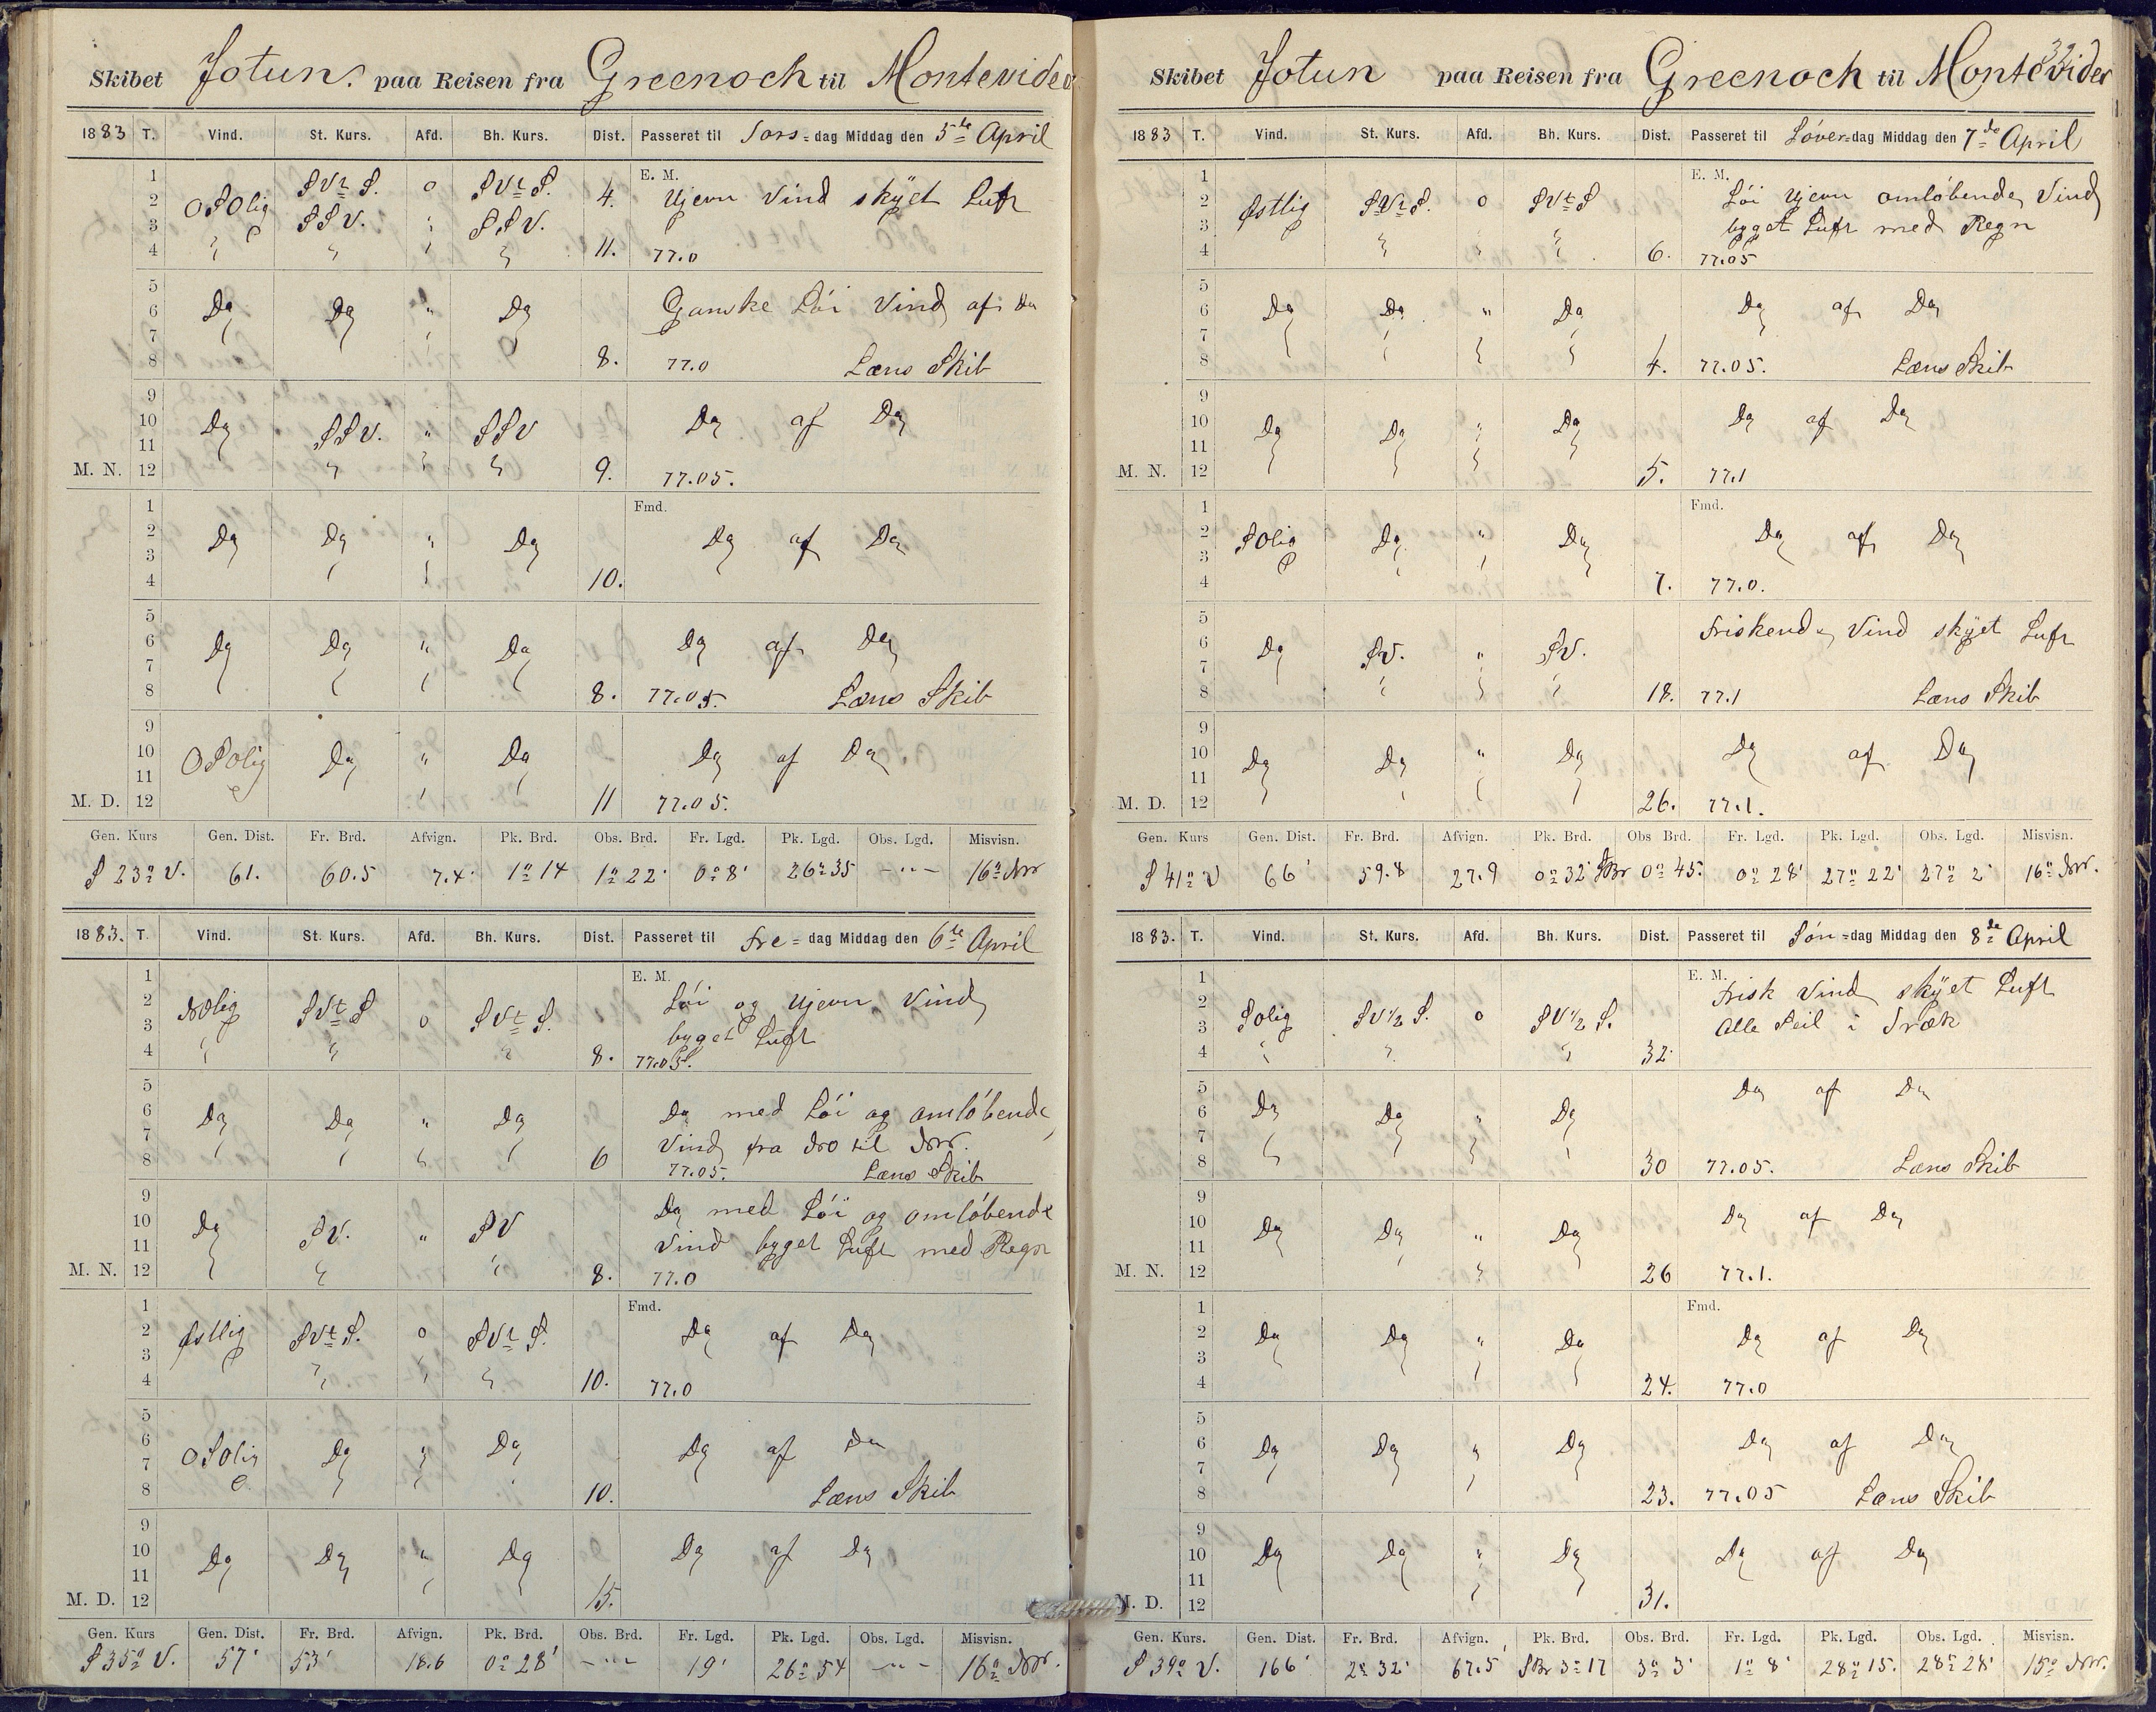 Skibet Jotun. paa Reisen fra Greenock til Montevideo
1883 T. Vind. St. Kurs. Afd. Bh. Kurs. Dist. Passeret til Tors-dag Middag den 5te April
1 E. M.
2 OSOlig SVtS. 0 SVtS. 4. Ujevn Vind skyet Luft
3 SSV. " SSV.
4 " " " " 11. 77.0
5
6 Do Do " Do Ganske Löi Vind af Do
7
8 8. 77.0 Læns Skib
9
10 Do SSV. " SSV Do af Do
11
M. N. 12 9. 77.05.
1 Fmd.
2 Do Do " Do Do af Do
3
4 10.
5
6 Do Do " Do Do af Do
7
8 8. 77.05. Læns Skib
9
10 OSOlig Do " Do Do af Do
11
M. D. 12 11 77.05.
Gen. Kurs Gen. Dist. Fr. Brd. Afvign. Pk. Brd. Obs. Brd. Fr. Lgd. Pk. Lgd. Obs. Lgd. Misvisn.
S 23° V. 61. 60.5 7.4' 1° 14 1° 22' 0° 8' 26° 35 -"- 16° NW
1883. T. Vind. St. Kurs. Afd. Bh. Kurs. Dist. Passeret til Fre-dag Middag den 6te April
1 E. M.
2 NOlig SVtS 0 SVtS. Löi og Ujevn Vind
3 byget Luft
4 " " " 8. 77.05.
5
6 Do Do " Do Do med Löi og omløbende
7 Vind fra NO til NW.
8 6 77.05. Læns Skib
9 Do med Löi og omløbende
10 Do SV. " SV
11 Vind byget Luft med Regn
M. N. 12 8. 77.0
1 Fmd.
2 Østlig SVtS. 0 SVtS. Do af Do
3
4 10. 77.0
5
6 OSOlig Do " Do Do af Do
7
8 10. Læns Skib
9
10 Do Do " Do Do af Do
11
M. D. 12 15.
Gen. Kurs Gen. Dist. Fr. Brd. Afvign. Pk. Brd. Obs. Brd. Fr. Lgd. Pk. Lgd. Obs. Lgd. Misvisn.
S 35° V. 57' 53' 18.6 0° 28' -"- 19' 26° 54 -"- 16° NW.
32
Skibet Jotun paa Reisen fra Greenock til Montevideo
1883 T. Vind. St. Kurs. Afd. Bh. Kurs. Dist. Passeret til Løver-dag Middag den 7de April
1 E. M.
2 Østlig SVtS. 0 SVtS Löi Ujevn omløbende Vind
3 byget Luft med Regn
4 6. 77.05
5
6 Do Do " Do Do af Do
7
8 4. 77.05. Læns Skib
9
10 Do Do " Do Do af Do
11
M. N. 12 5. 77.1
1 Fmd.
2 SOlig Do " Do Do af Do
3
4 7. 77.0.
5
6 Do SV. " SV. Friskende Vind skyet Luft
7
8 18. 77.1 Læns Skib
9
10 Do Do " Do Do af Do
11
M. D. 12 26. 77.1.
Gen. Kurs Gen. Dist. Fr. Brd. Afvign. Pk. Brd. Obs Brd. Fr. Lgd. Pk. Lgd. Obs. Lgd. Misvisn.
S 41° V 66' 59.8 27.9 0° 32' SBr 0° 45' 0° 28' 27° 22' 27° 2' 16° NW.
1883. T. Vind. St. Kurs. Afd. Bh. Kurs. Dist. Passeret til Søn-dag Middag den 8de April
1 E. M.
2 SOlig SV½S. 0 SV½S. Frisk Vind skyet Luft
3 Alle Seil i Træk
4 32.
5
6 Do Do " Do Do af Do
7
8 30 77.05. Læns Skib
9
10 Do Do " Do Do af Do
11
M. N. 12 26 77.1.
1 Fmd.
2 Do Do " Do Do af Do
3
4 24. 77.0
5
6 Do Do " Do Do af Do
7
8 23. 77.05 Læns Skib
9
10 Do Do " Do Do af Do
11
M. D. 12 31.
Gen. Kurs. Gen. Dist. Fr. Brd. Afvign. Pk. Brd. Obs. Brd. Fr. Lgd. Pk. Lgd. Obs. Lgd. Misvisn.
S 39° V. 166' 2° 32' 67.5 SBr 3° 17 3° 3' 1° 8' 28° 15. 28° 28' 15° NW.